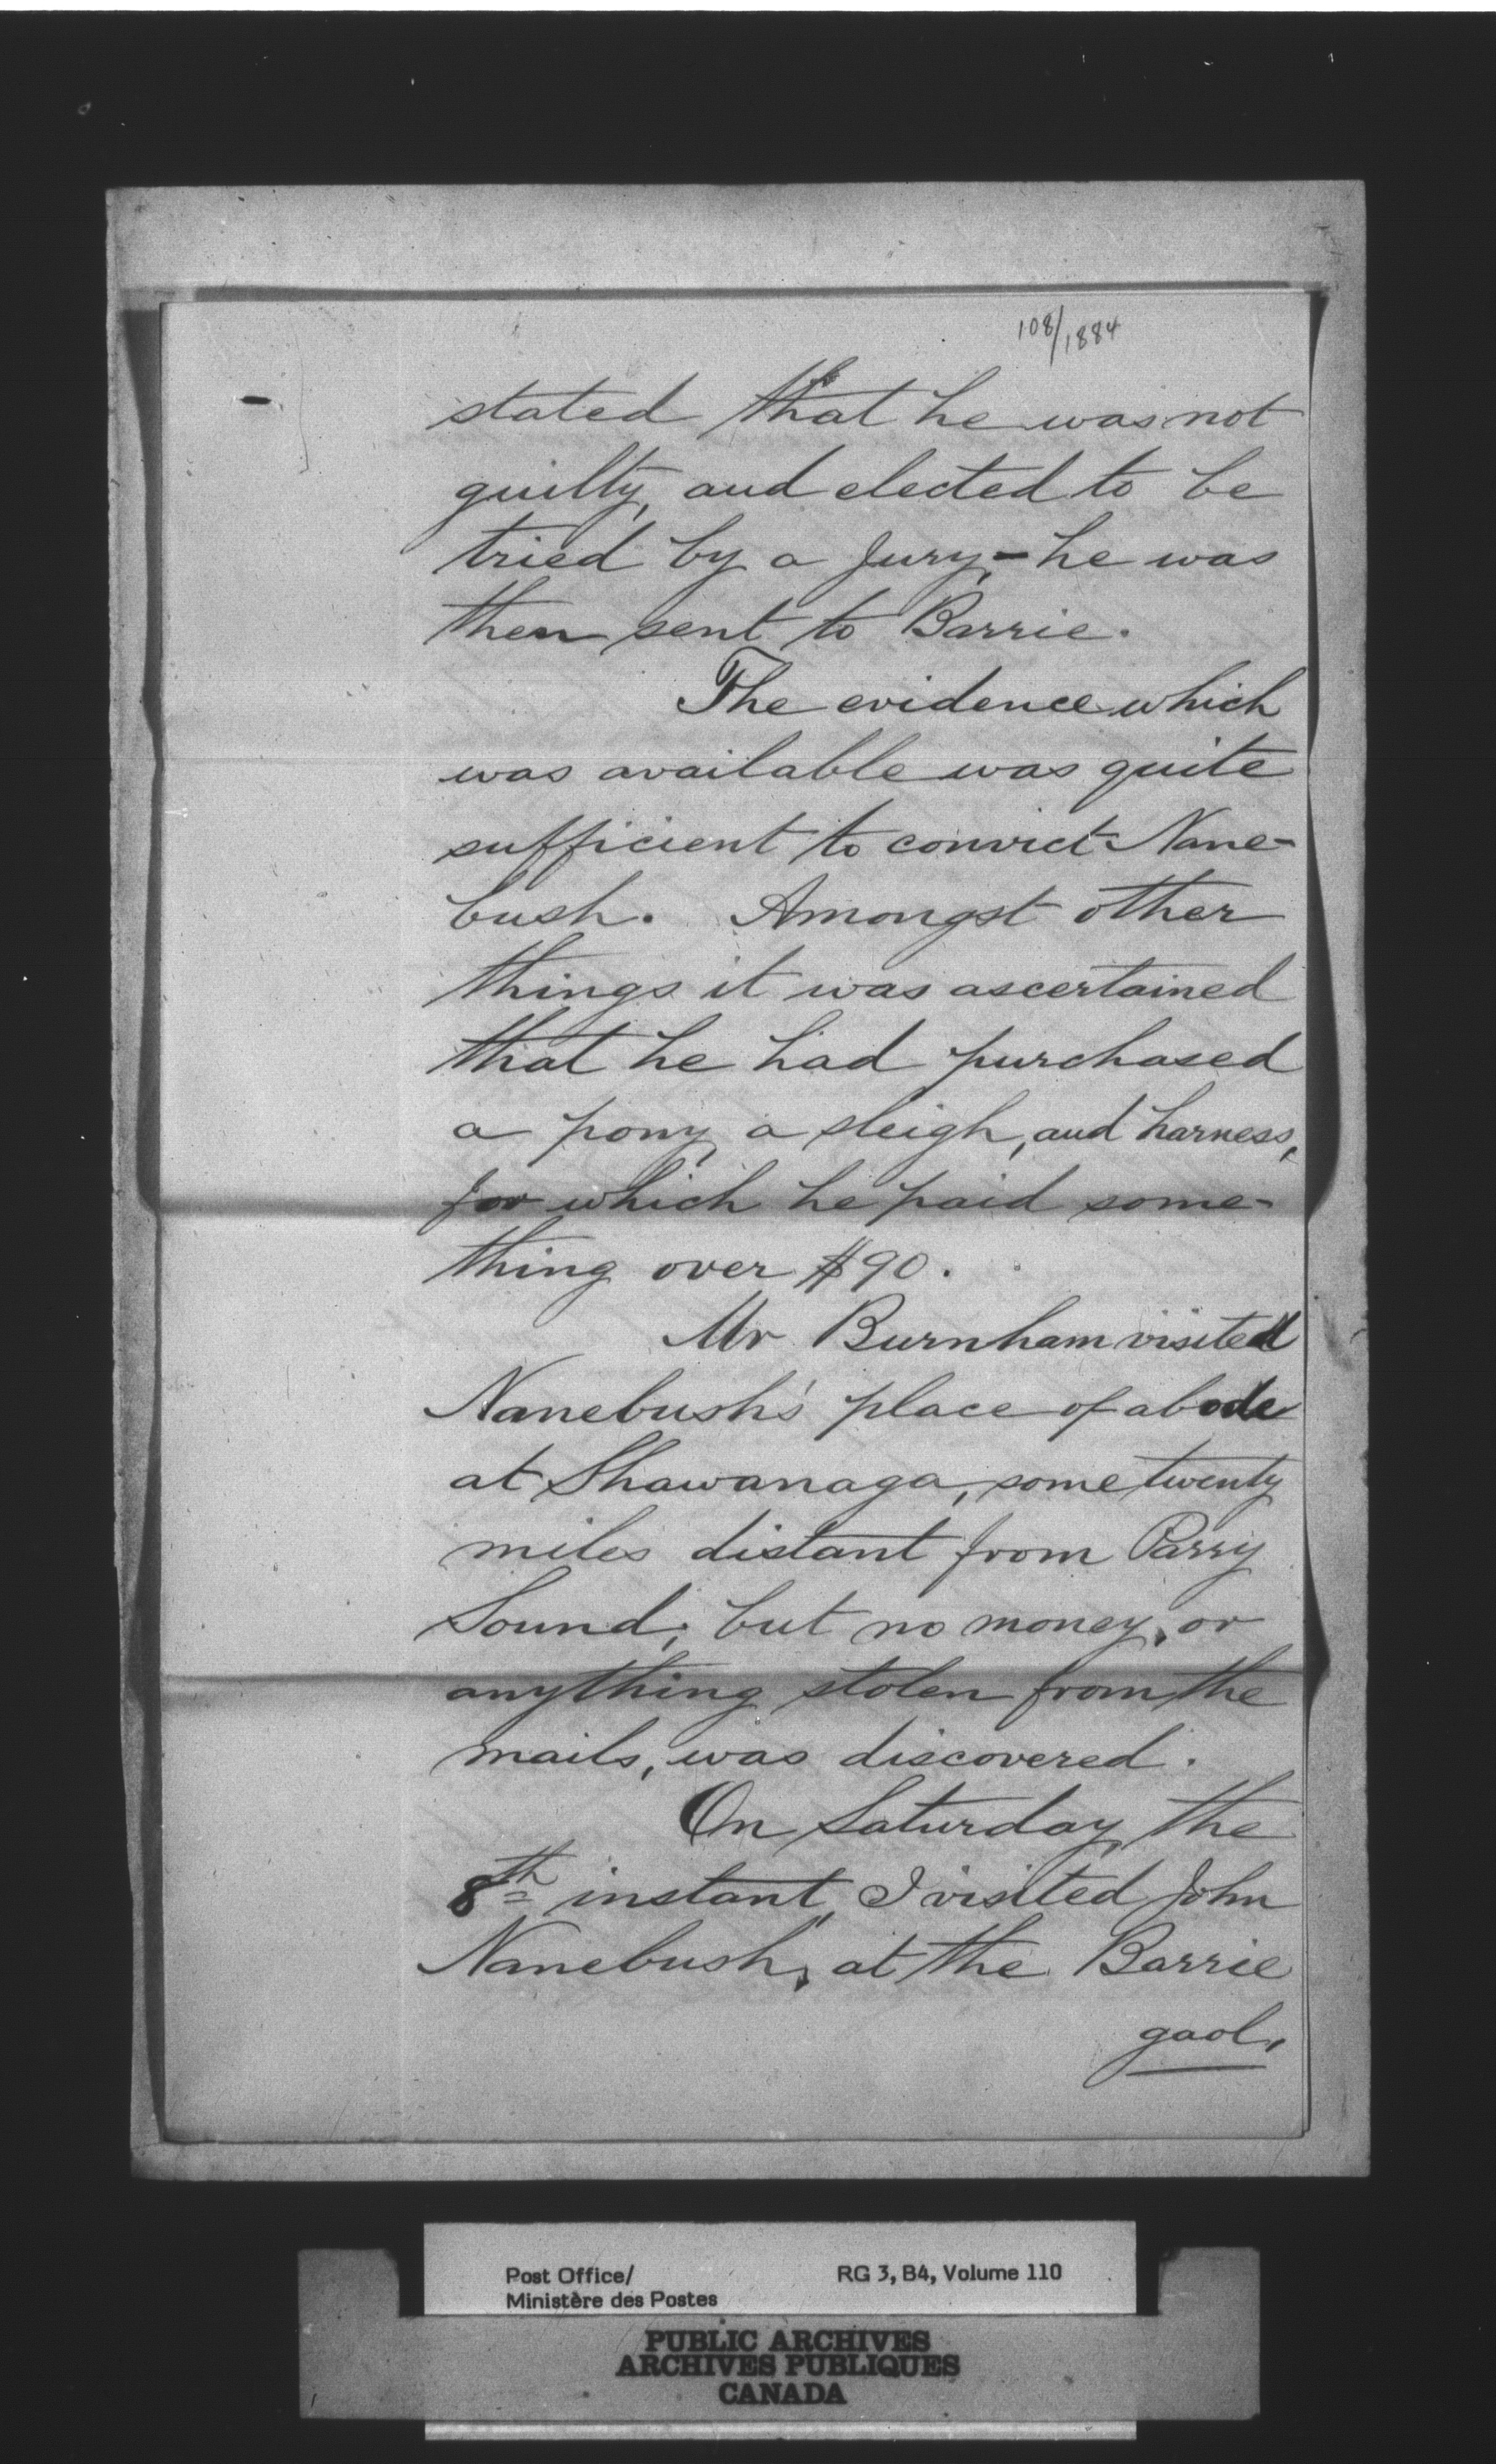 108/1884
stated that he was not
guilty, and elected to be
tried by a Jury,- he was
then sent to Barrie.
The evidence which
was available was quite
sufficient to convict Nane-
bush. Amongst other
things it was ascertained
that he had purchased
a pony, a sleigh, and harness,
for which he paid some-
thing over $90.
Mr Burnham visited
Nanebush's place of abode
at Shawanaga, some twenty
miles distant from Parry
Sound; but no money, or
anything stolen from the
mails, was discovered.
On Saturday, the
8th instant, I visited John
Nanebush, at the Barrie
gaol,
Post Office/ RG 3, B4, Volume 110
Ministère des Postes
PUBLIC ARCHIVES
ARCHIVES PUBLIQUES
CANADA